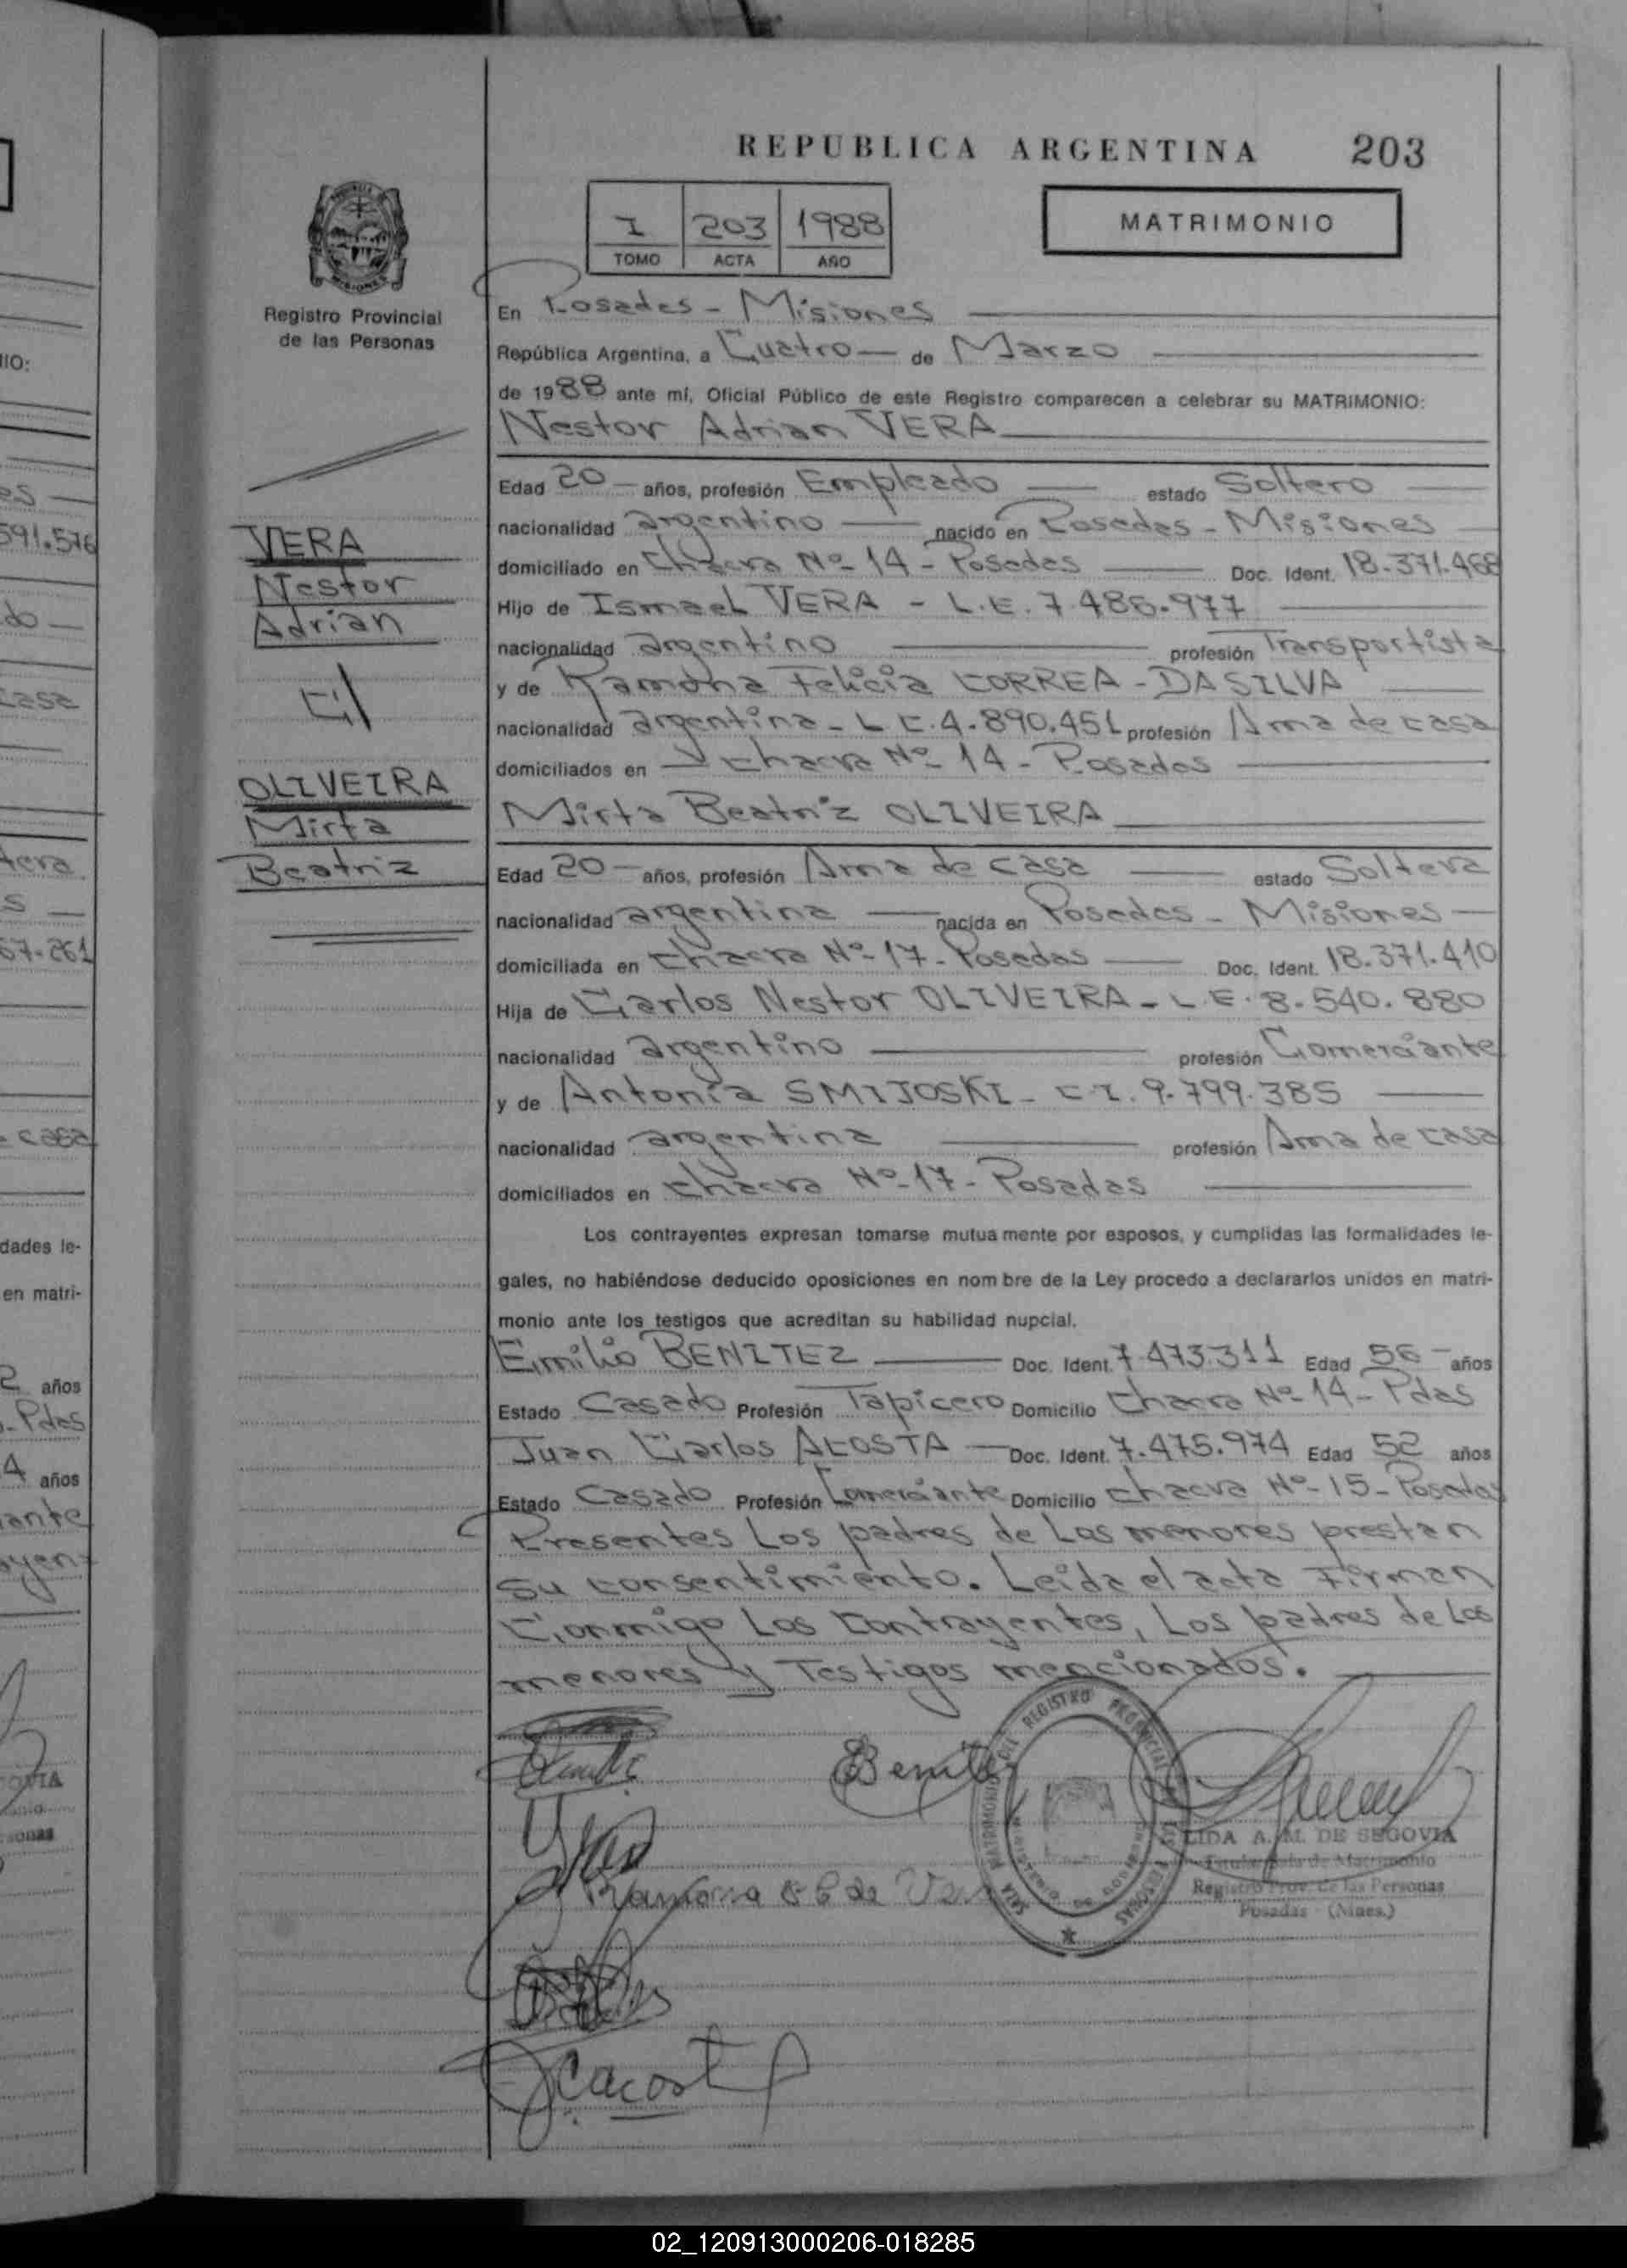 REPUBLICA ARGENTINA 203
I 203 1988
TOMO ACTA AÑO
MATRIMONIO
MISIONES
Registro Provincial
de las Personas
En Posadas - Misiones
República Argentina, a Cuatro de Marzo
de 1988 ante mí, Oficial Público de este Registro comparecen a celebrar su MATRIMONIO:
Nestor Adrian VERA
Edad 20 años, profesión Empleado estado Soltero
nacionalidad argentino nacido en Posadas - Misiones
domiciliado en Chacra Nº 14 - Posadas Doc. Ident. 18.371.468
Hijo de Ismael VERA - L.E. 7.486.977
nacionalidad argentino profesión Transportista
y de Ramona Felicia CORREA - DA SILVA
nacionalidad argentina - L C. 4.890.451 profesión Ama de casa
domiciliados en chacra Nº 14 - Posadas
Mirta Beatriz OLIVEIRA
Edad 20 años, profesión Ama de casa estado Soltera
nacionalidad argentina nacida en Posadas - Misiones
domiciliada en chacra Nº 17 - Posadas Doc. Ident. 18.371.410
Hija de Carlos Nestor OLIVEIRA - L.E. 8.540.880
nacionalidad argentino profesión Comerciante
y de Antonia SMIJOSKI - C.I. 9.799.385
nacionalidad argentina profesión Ama de casa
domiciliados en chacra Nº 17 - Posadas
Los contrayentes expresan tomarse mutua mente por esposos, y cumplidas las formalidades le-
gales, no habiéndose deducido oposiciones en nom bre de la Ley procedo a declararlos unidos en matri-
monio ante los testigos que acreditan su habilidad nupcial.
Emilio BENITEZ Doc. Ident. 7.473.311 Edad 56 años
Estado Casado Profesión Tapicero Domicilio Chacra Nº 14 - Pdas
Juan Carlos ACOSTA Doc. Ident. 7.475.974 Edad 52 años
Estado Casado Profesión Comerciante Domicilio chacra Nº 15 - Posadas
Presentes Los padres de Los menores prestan
su consentimiento. Leida el acta Firman
Conmigo Los Contrayentes, Los padres de Los
menores y Testigos mencionados.
VERA
Nestor
Adrian
c/
OLIVEIRA
Mirta
Beatriz
Benitez
Ramona de Vera
REGISTRO PROVINCIAL DE LAS PERSONAS
MATRIMONIO
LIDA A. M. DE SEGOVIA
Titular Sala de Matrimonio
Registro Prov. de las Personas
Posadas (Mnes.)
JCAcosta
IO:
es
591.576
do
casa
tera
s
67.261
casa
dades le-
en matri-
2 años
Pdas
4 años
ante
ayen-
OVIA
sonas
02_120913000206-018285